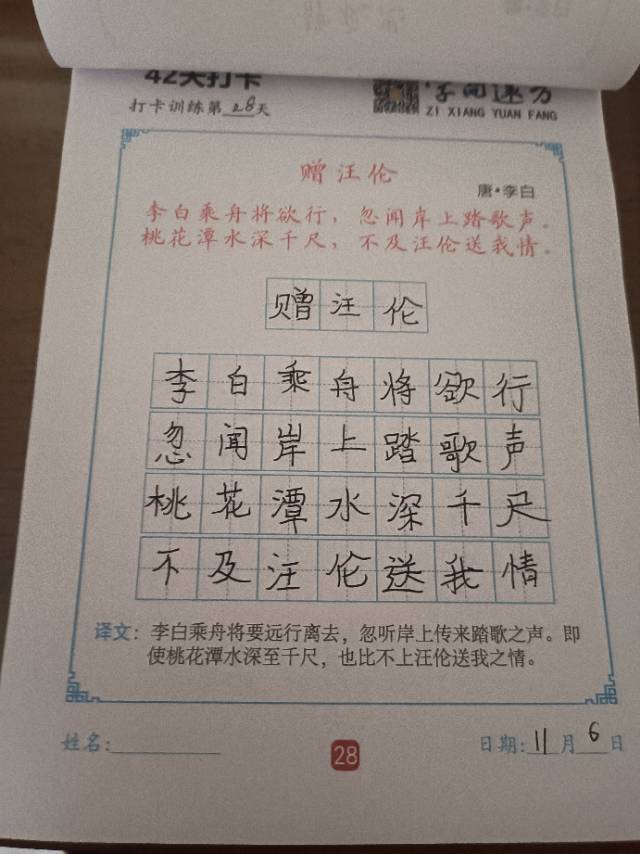 42天打卡
打卡训练第28天
字向速方
ZI XIANG YUAN FANG
赠汪伦
唐·李白
李白乘舟将欲行，忽闻岸上踏歌声。
桃花潭水深千尺，不及汪伦送我情。
赠汪伦
李白乘舟将欲行
忽闻岸上踏歌声
桃花潭水深千尺
不及汪伦送我情
译文：李白乘舟将要远行离去，忽听岸上传来踏歌之声。即
使桃花潭水深至千尺，也比不上汪伦送我之情。
姓名：
28
日期：11月6日